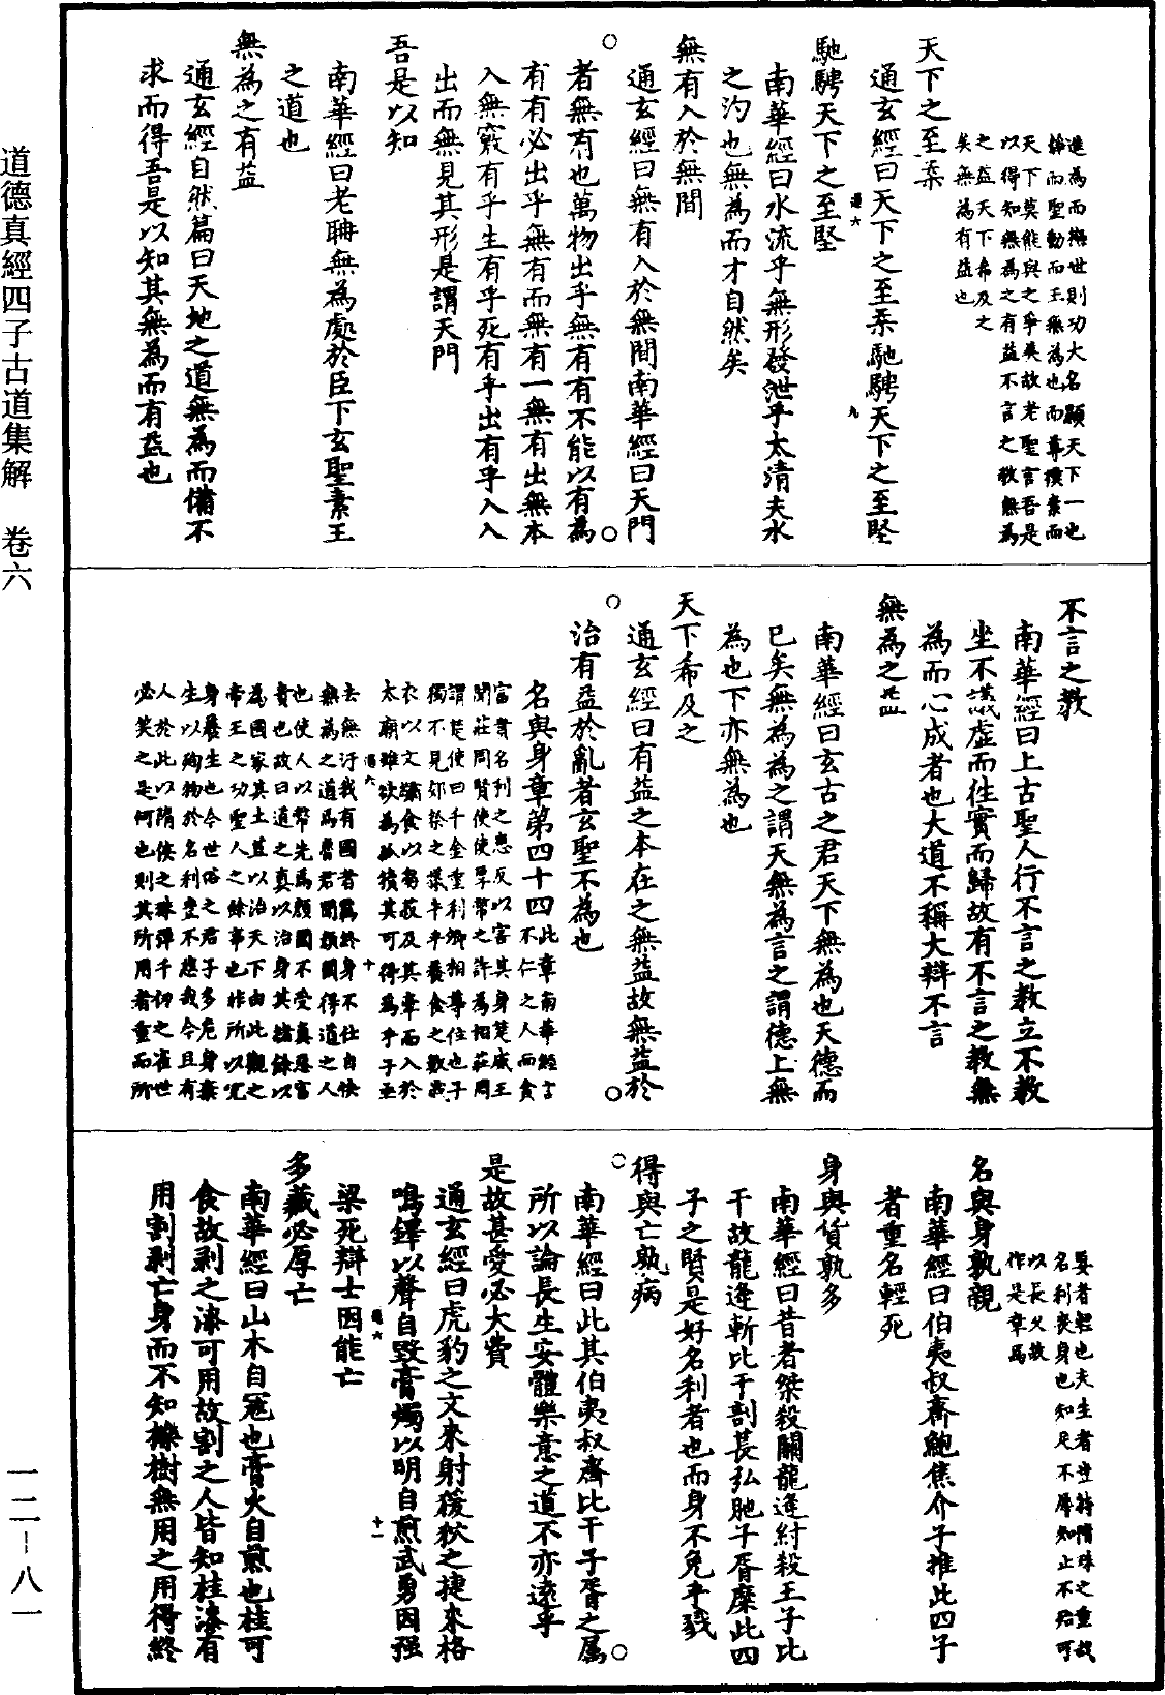 進為而撫世則功大名顯天下一也
靜而聖動而王無為也而尊樸素而
天下莫能與之爭美故老聖言吾是
以得知無為之有益不言之教無為
之益天下希及之
矣無為有益也
天下之至柔
通玄經曰天下之至柔馳騁天下之至堅
馳騁天下之至堅
南華經曰水流乎無形發泄乎太清夫水
之汋也無為而才自然矣
無有入於無間
通玄經曰無有入於無間南華經曰天門
者無有也萬物出乎無有有不能以有為
有有必出乎無有而無有一無有出無本
入無竅有乎生有乎死有乎出有乎入入
出而無見其形是謂天門
吾是以知
南華經曰老聃無為處於臣下玄聖素王
之道也
無為之有益
通玄經自然篇曰天地之道無為而備不
求而得吾是以知其無為而有益也
不言之教
南華經曰上古聖人行不言之教立不教
坐不議虛而往實而歸故有不言之教無
為而心成者也大道不稱大辯不言
無為之益
南華經曰玄古之君天下無為也天德而
已矣無為為之謂天無為言之謂德上無
為也下亦無為也
天下希及之
通玄經曰有益之本在之無益故無益於
治有益於亂者玄聖不為也
名與身章第四十四此章南華經言
不仁之人而貪
富貴名利之患反以害其身楚威王
聞莊周賢使使厚幣之許為相莊周
謂楚使曰千金重利卿相尊位也子
獨不見郊祭之犧牛乎養食之數歲
衣以文繡食以芻菽及其牽而入於
太廟雖欲為孤犢其可得為乎子亟
去無汙我有國者羈終身不仕自快
無為之道為魯君聞顏闔得道之人
也使人以幣先焉顏闔不受真惡富
貴也故曰道之真以治身其緒餘以
為國家其土苴以治天下由此觀之
帝王之功聖人之餘事也非所以完
身養生也今世俗之君子多危身棄
生以殉物於名利豈不悲哉今且有
人於此以隋侯之珠彈千仞之雀世
必笑之是何也則其所用者重而所
要者輕也夫生者豈特隋珠之重哉
名利喪身也知足不辱知止不殆可
以長久故
作是章焉
名與身孰親
南華經曰伯夷叔齊鮑焦介子推此四子
者重名輕死
身與貨孰多
南華經曰昔者桀殺關龍逢紂殺王子比
干故龍逢斬比干剖萇弘胣子胥靡此四
子之賢是好名利者也而身不免乎戮
得與亡孰病
南華經曰此其伯夷叔齊比干子胥之屬
所以論長生安體樂意之道不亦遠乎
是故甚愛必大費
通玄經曰虎豹之文來射猨狄之捷來格
鳴鐸以聲自毀膏燭以明自煎武勇因强
梁死辯士因能亡
多藏必厚亡
南華經曰山木自寇也膏火自煎也桂可
食故剥之漆可用故割之人皆知桂漆有
用割剥亡身而不知櫟樹無用之用得終
道德真經四子古道集解　卷六
一二－八一